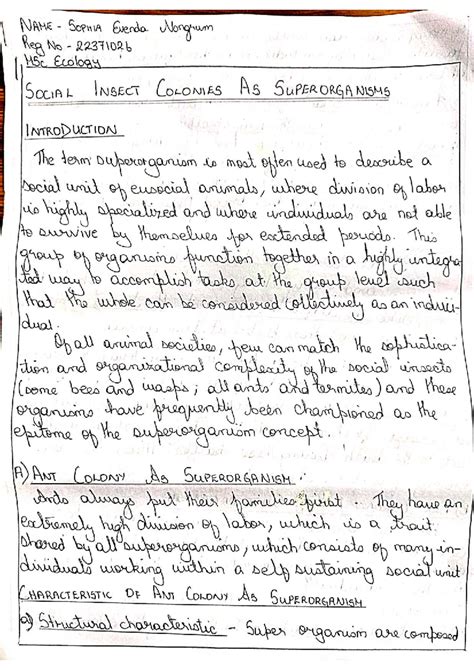 NAME - SOPHIA Evenda Nongrum
Reg No - 22371026
MSc Ecology
SOCIAL INSECT COLONIES AS SUPERORGANISMS
INTRODUCTION
The term superorganism is most often used to describe a
social unit of eusocial animals, where division of labor
is highly specialized and where individuals are not able
to survive by themselves for extended periods. This
group of organisms function together in a highly integra-
ted way to accomplish tasks at the group level such
that the whole can be considered collectively as an indivi-
dual.
Of all animal societies, few can match the sophistica-
tion and organizational complexity of the social insects
(some bees and wasps; all ants and termites) and these
organisms have frequently been championed as the
epitome of the superorganism concept.
A) ANT COLONY AS SUPERORGANISM:
Ants always put their families first. They have an
extremely high division of labor, which is a trait
shared by all superorganisms, which consists of many in-
dividuals working within a self sustaining social unit
CHARACTERISTIC OF ANT COLONY AS SUPERORGANISM
a) Structural characteristic - Super organism are composed